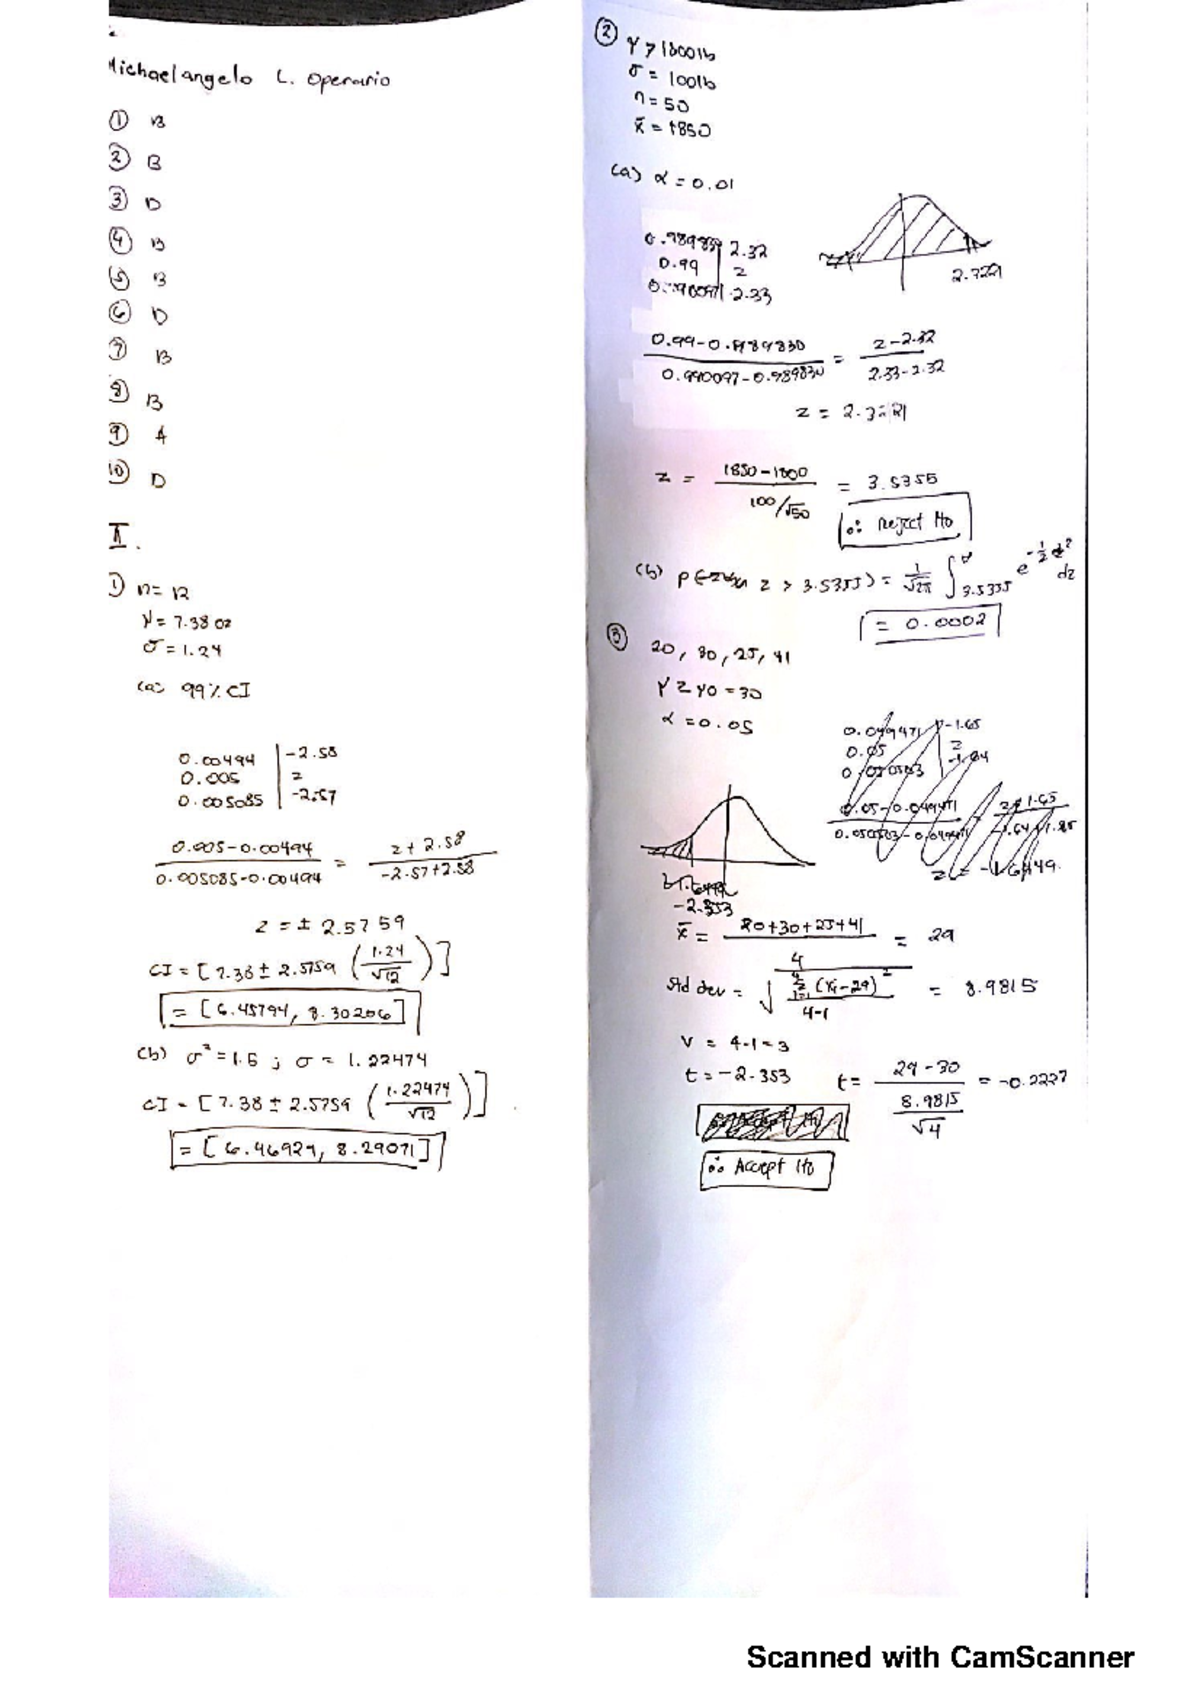 Michaelangelo L. Operario
① B
② B
③ D
④ B
⑤ B
⑥ D
⑦ B
⑧ B
⑨ A
⑩ D
II.
① n = 12
σ = 1.24
(a) 99% CI
0.00494 | -2.58
0.005 | z
0.005085 | -2.57
0.005-0.00494 / 0.005085-0.00494 = z + 2.58 / -2.57+2.58
z = ± 2.5759
CI = [7.38 ± 2.5759 (1.24/√12)]
= [6.45794, 8.30206]
(b) σ² = 1.5 ; σ = 1.22474
CI = [7.38 ± 2.5759 (1.22474/√12)]
= [6.46929, 8.29071]
②
σ = 100lb
n = 50
x̄ = 1850
(a) α = 0.01
0.989830 | 2.32
0.99 | z
0.990097 | 2.33
0.99-0.989830 / 0.990097-0.989830 = z-2.32 / 2.33-2.32
z =
z = 1850-1800 / 100/√50 = 3.5355
∴ Reject Ho
(b) z > 3.5355) = 1/√2π ∫ 3.5355 e^-½z² dz
= 0.0002
③ 20, 30, 25, 41
α = 0.05
-2.353
x̄ = 20+30+25+41 / 4 = 29
Std dev = √ (xi-29)² / 4-1 = 8.9815
v = 4-1 = 3
t = -2.353
t = 29-30 / 8.9815/√4 = -0.2227
∴ Accept Ho
Scanned with CamScanner